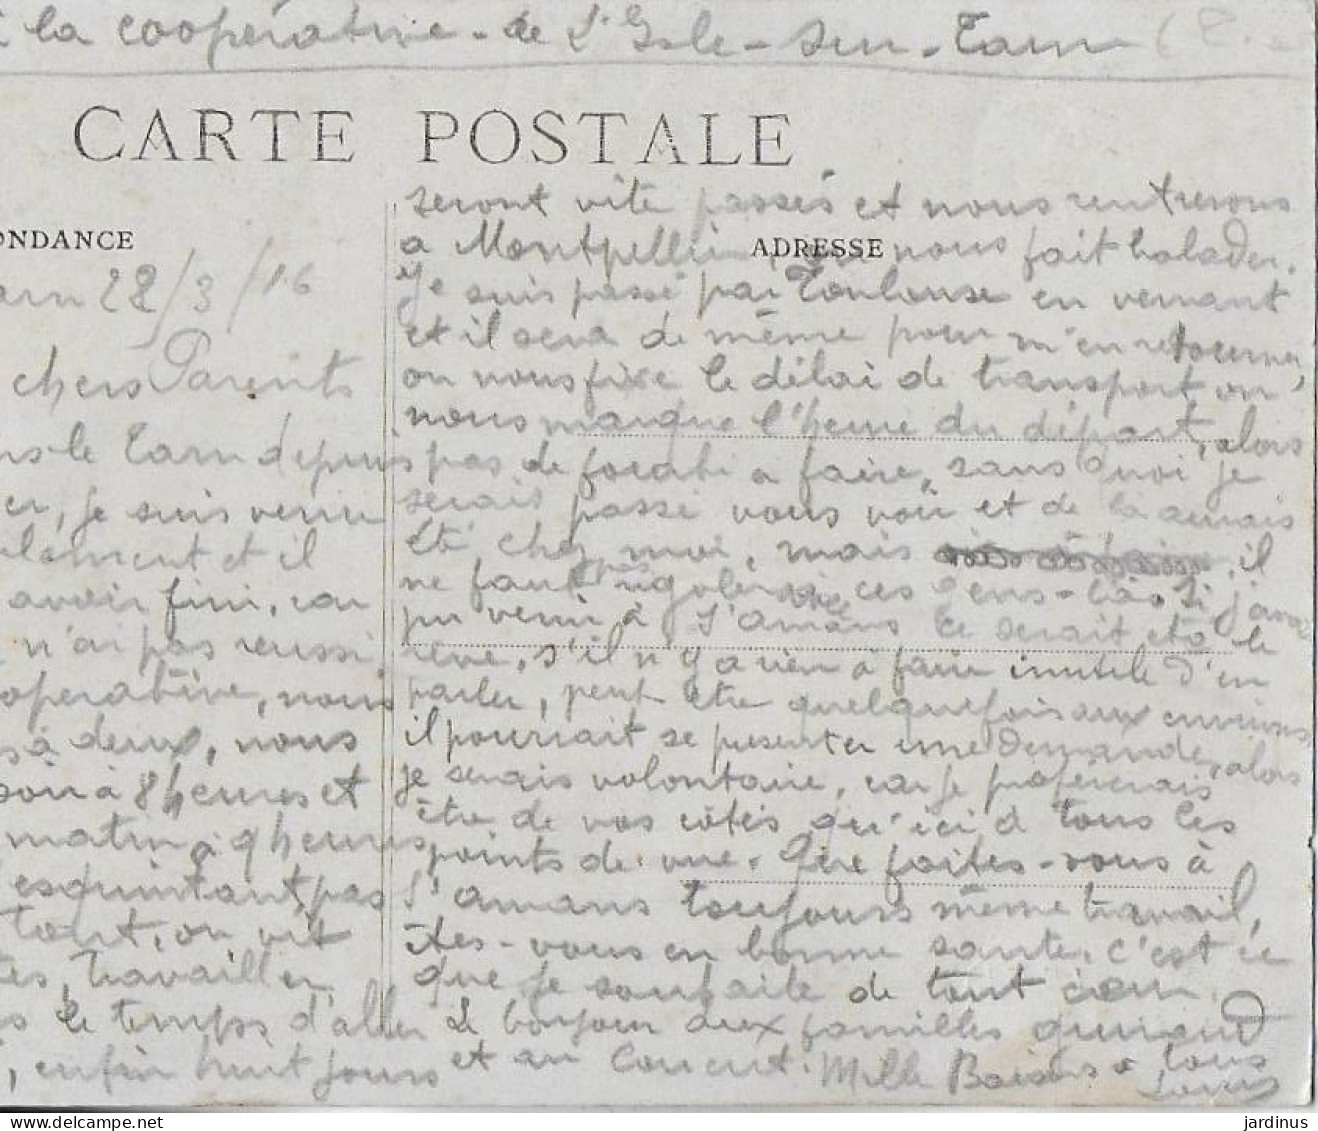 la coopérative - de l'Isle-sur-Tarn (
CARTE POSTALE
ONDANCE
arn 22/3/16
chers Parents
ns-le Tarn depuis
er, je suis venu
ulement et il
avoir fini, car
n'ai pas reussi,
operative, nous
s à deux, nous
soir à 8 heures et
matin à 9 heures,
esquintant, pas
tout, on vit
tes, travailler
s le temps d'aller
, enfin huit jours
ADRESSE
seront vite passés et nous rentrerons
a Montpellier nous fait balader.
Je suis passé par Toulouse en venant
et il sera de même pour m'en retourner,
on nous fixe le délai de transport on
nous marque l'heure du départ, alors
pas de à faire, sans quoi je
serais passé vous voir et de la aurais
été chez moi, mais il
ne faut pas rigoler avec ces gens-là. Si j'avais
pu venir à S'Amans ce serait eté le
reve, s'il n'y a rien à faire inutile d'en
parler, peut être quelquefois aux environs
il pourrait se presenter une demande, alors
je serais volontaire, car je prefererais
être de vos côtés qu'ici à tous les
points de vue. Que faites-vous à
S'Amans toujours même travail,
êtes-vous en bonne santé, c'est ce
que je souhaite de tout cœur.
Le bonjour aux familles
et au Mille Baisers a tous
Louis
jardinus